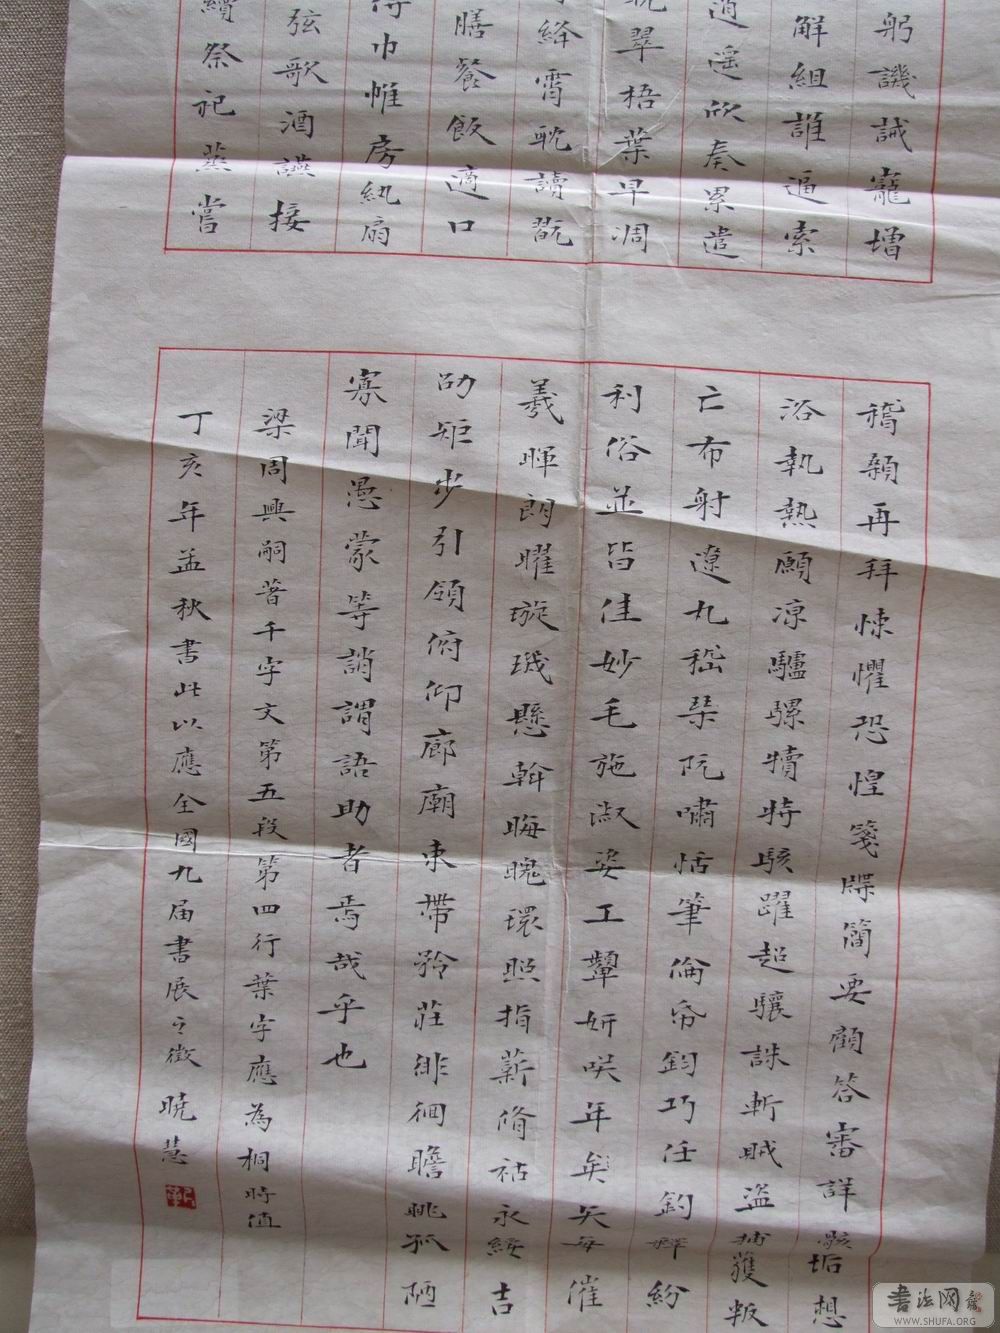 躬譏誡寵增
解組誰逼索
逍遥欣奏累遣
翠梧葉早凋
絳霄耽讀翫
膳餐飯適口
巾帷房紈扇
弦歌酒讌接
續祭祀蒸嘗
稽顙再拜悚懼恐惶箋牒簡要顧答審詳骸垢想
浴執熱願凉驢騾犢特駭躍超驤誅斬賊盜捕獲叛
亡布射遼丸嵇琴阮嘯恬筆倫帋鈞巧任釣釋紛
利俗並皆佳妙毛施淑姿工顰妍咲年矣矢每催
羲暉朗曜璇璣懸斡晦魄環照指薪脩祜永綏吉
劭矩步引領俯仰廊廟束帶矜莊徘徊瞻眺孤陋
寡聞愚蒙等誚謂語助者焉哉乎也
梁周興嗣著千字文第五段第四行葉字應為桐時值
丁亥年孟秋書此以應全國九届書展之徵 曉慧
書法网
WWW.SHUFA.ORG